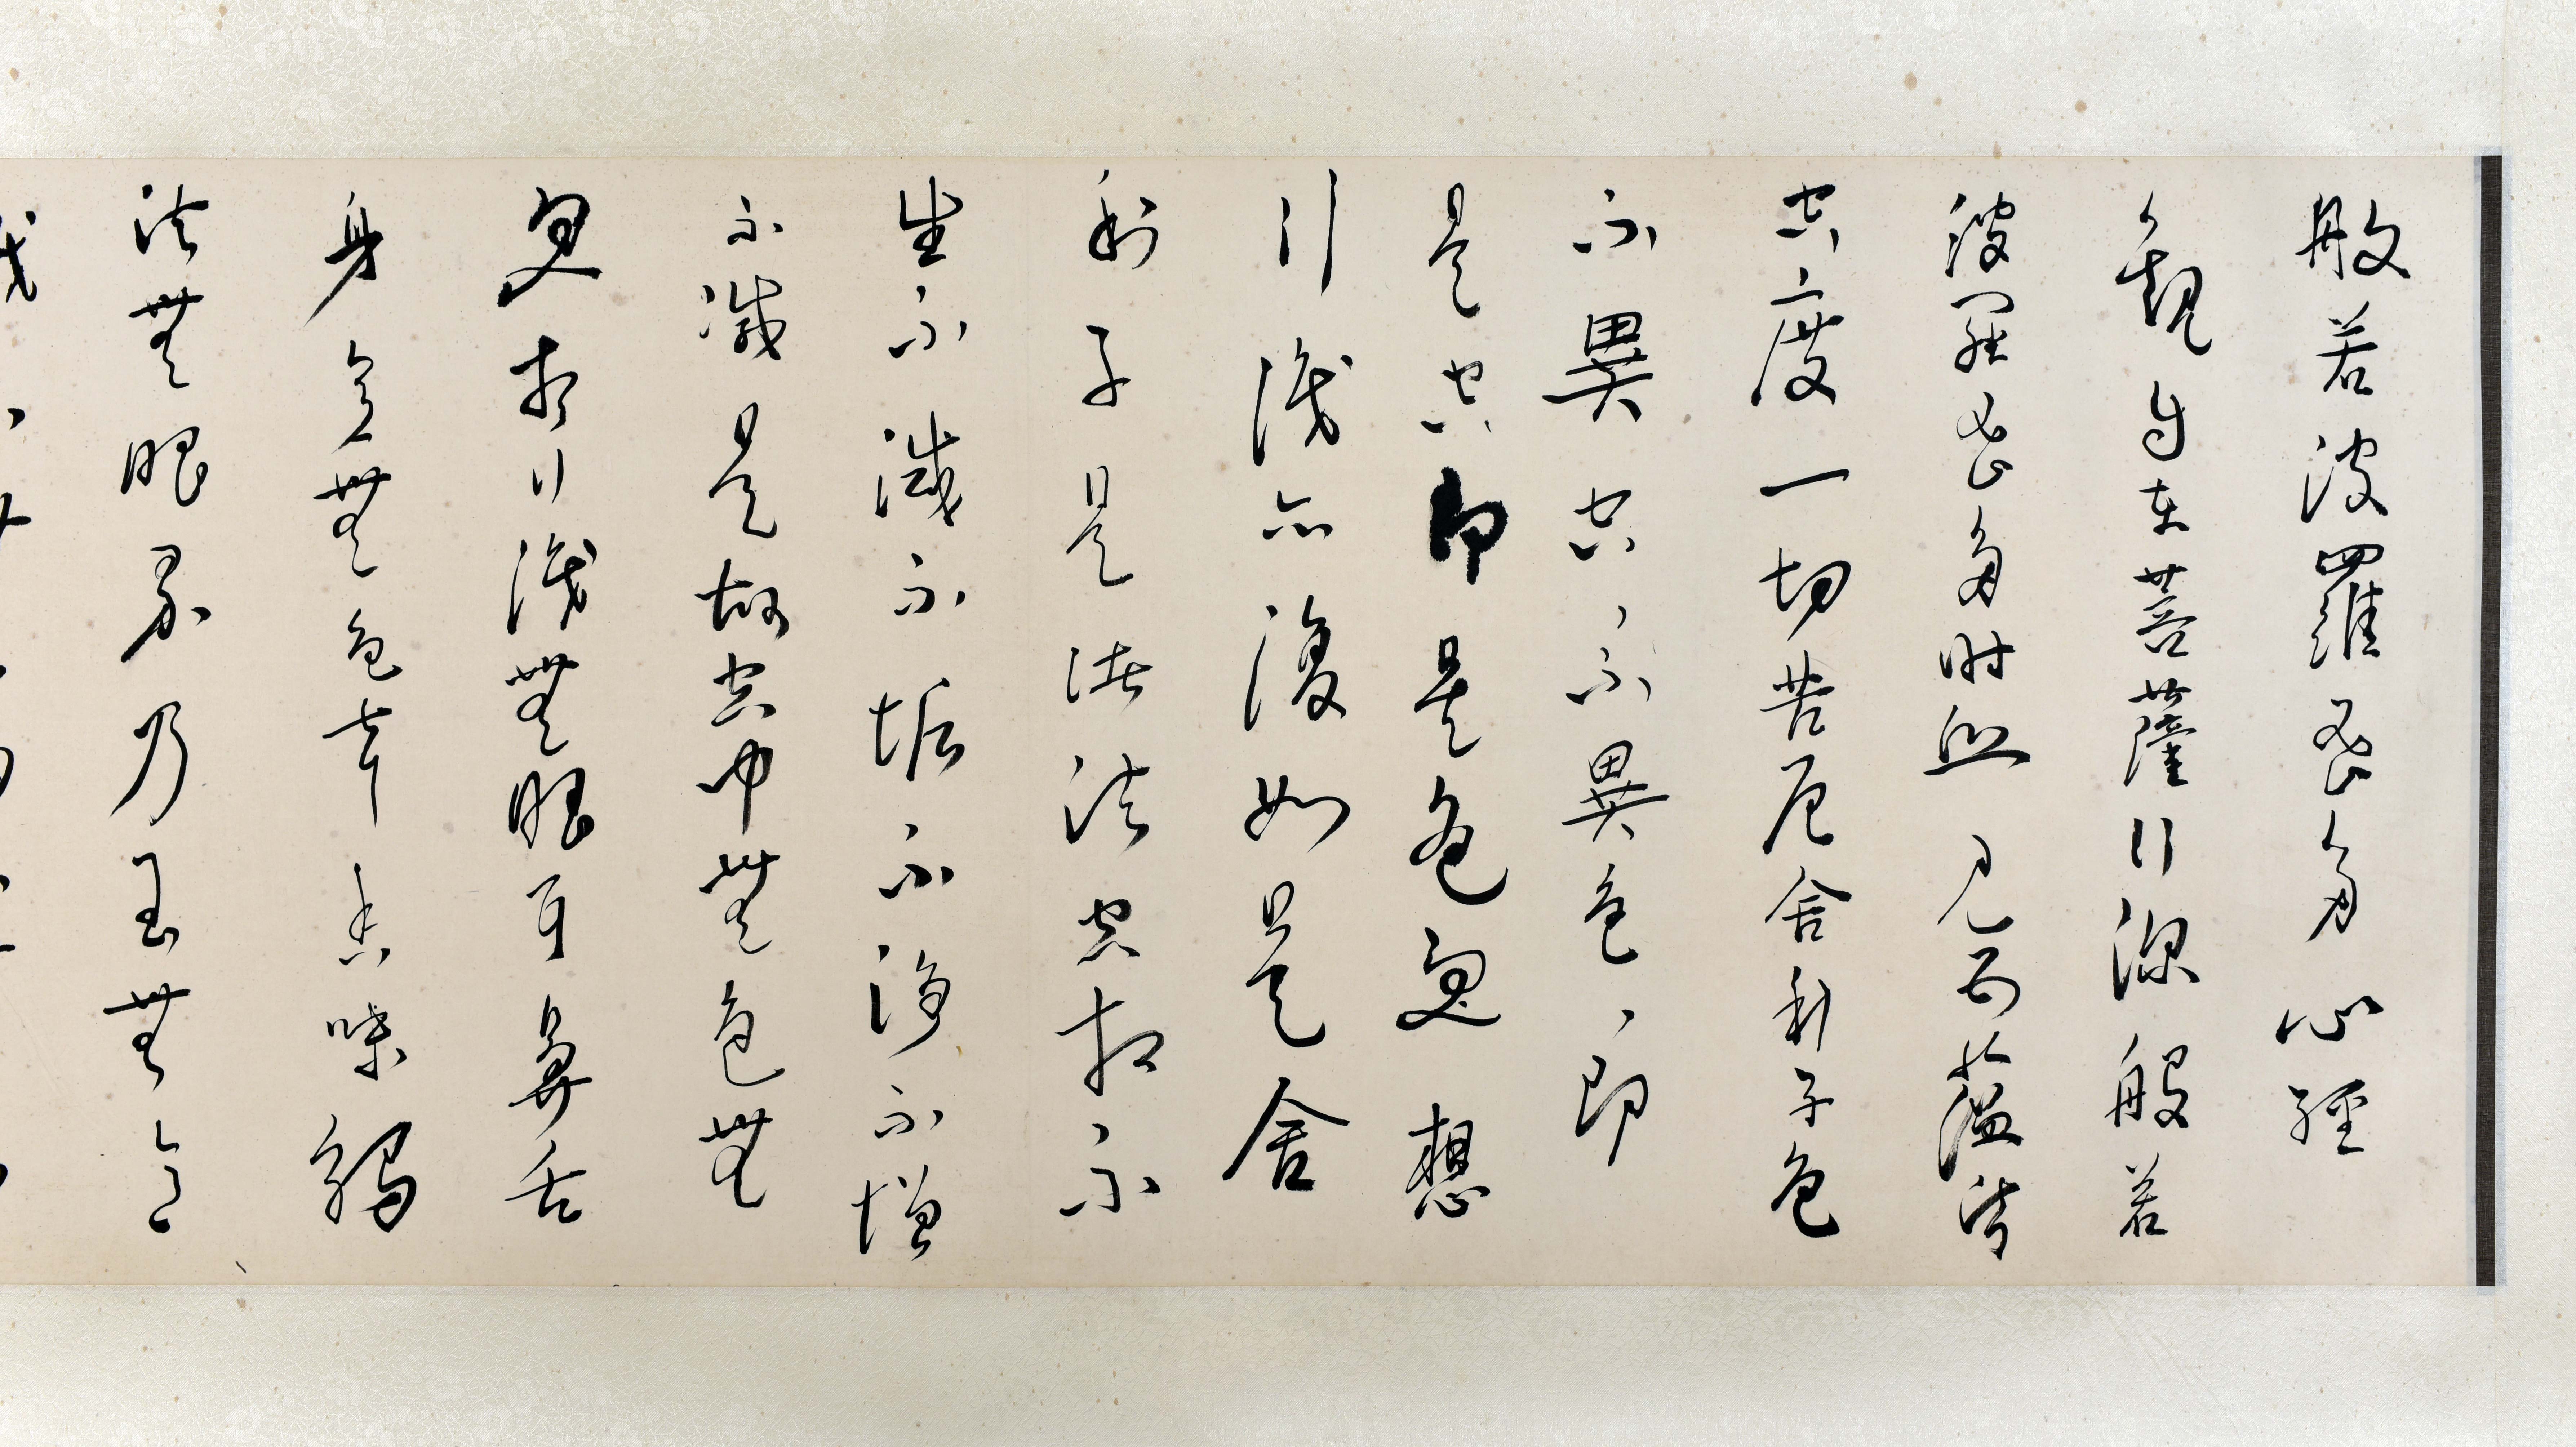 般若波羅蜜多心經
觀自在菩薩行深般若
波羅蜜多時照見五蘊皆
空度一切苦厄舍利子色
不異空、不異色、即
是空即是色受想
行識亦復如是舍
利子是諸法空相不
生不滅不垢不淨不增
不減是故空中無色無
受想行識無眼耳鼻舌
身意無色聲香味觸
法無眼界乃至無意